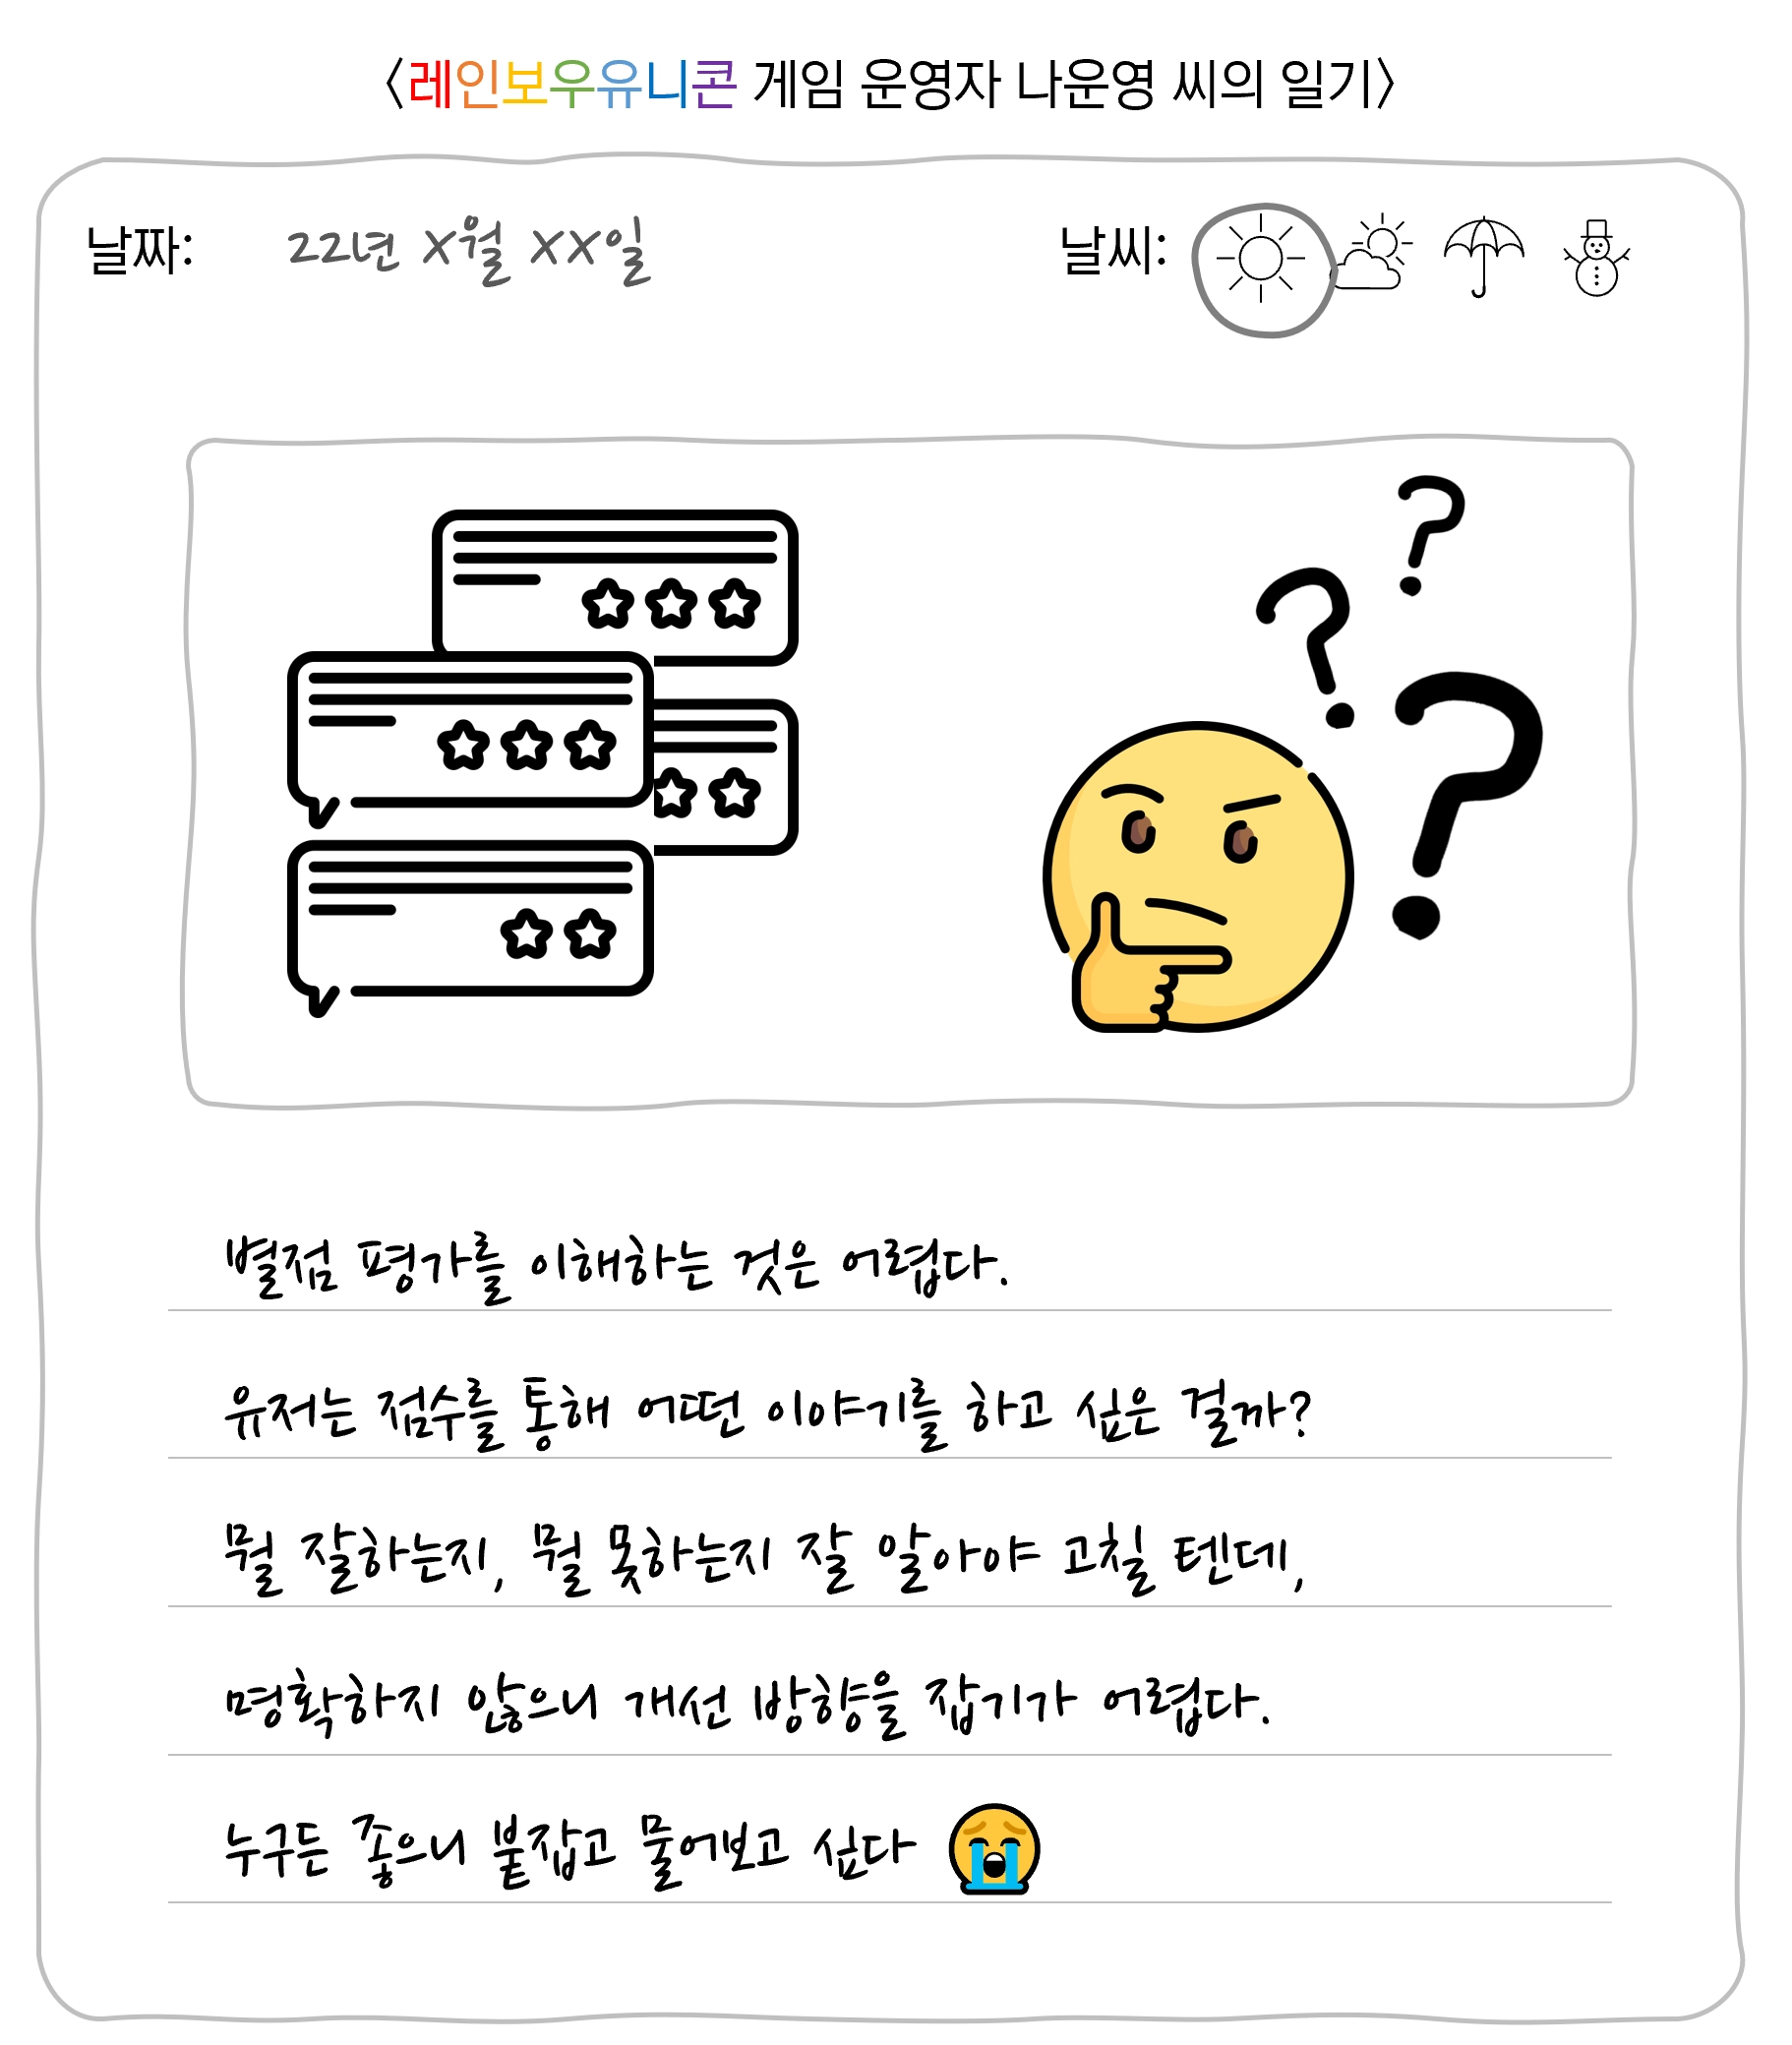 <레인보우유니콘 게임 운영자 나운영 씨의 일기>
날짜: 22년 X월 XX일 날씨:
별점 평가를 이해하는 것은 어렵다.
유저는 점수를 통해 어떤 이야기를 하고 싶은 걸까?
뭘 잘하는지, 뭘 못하는지 잘 알아야 고칠 텐데,
명확하지 않으니 개선 방향을 잡기가 어렵다.
누구든 좋으니 붙잡고 물어보고 싶다